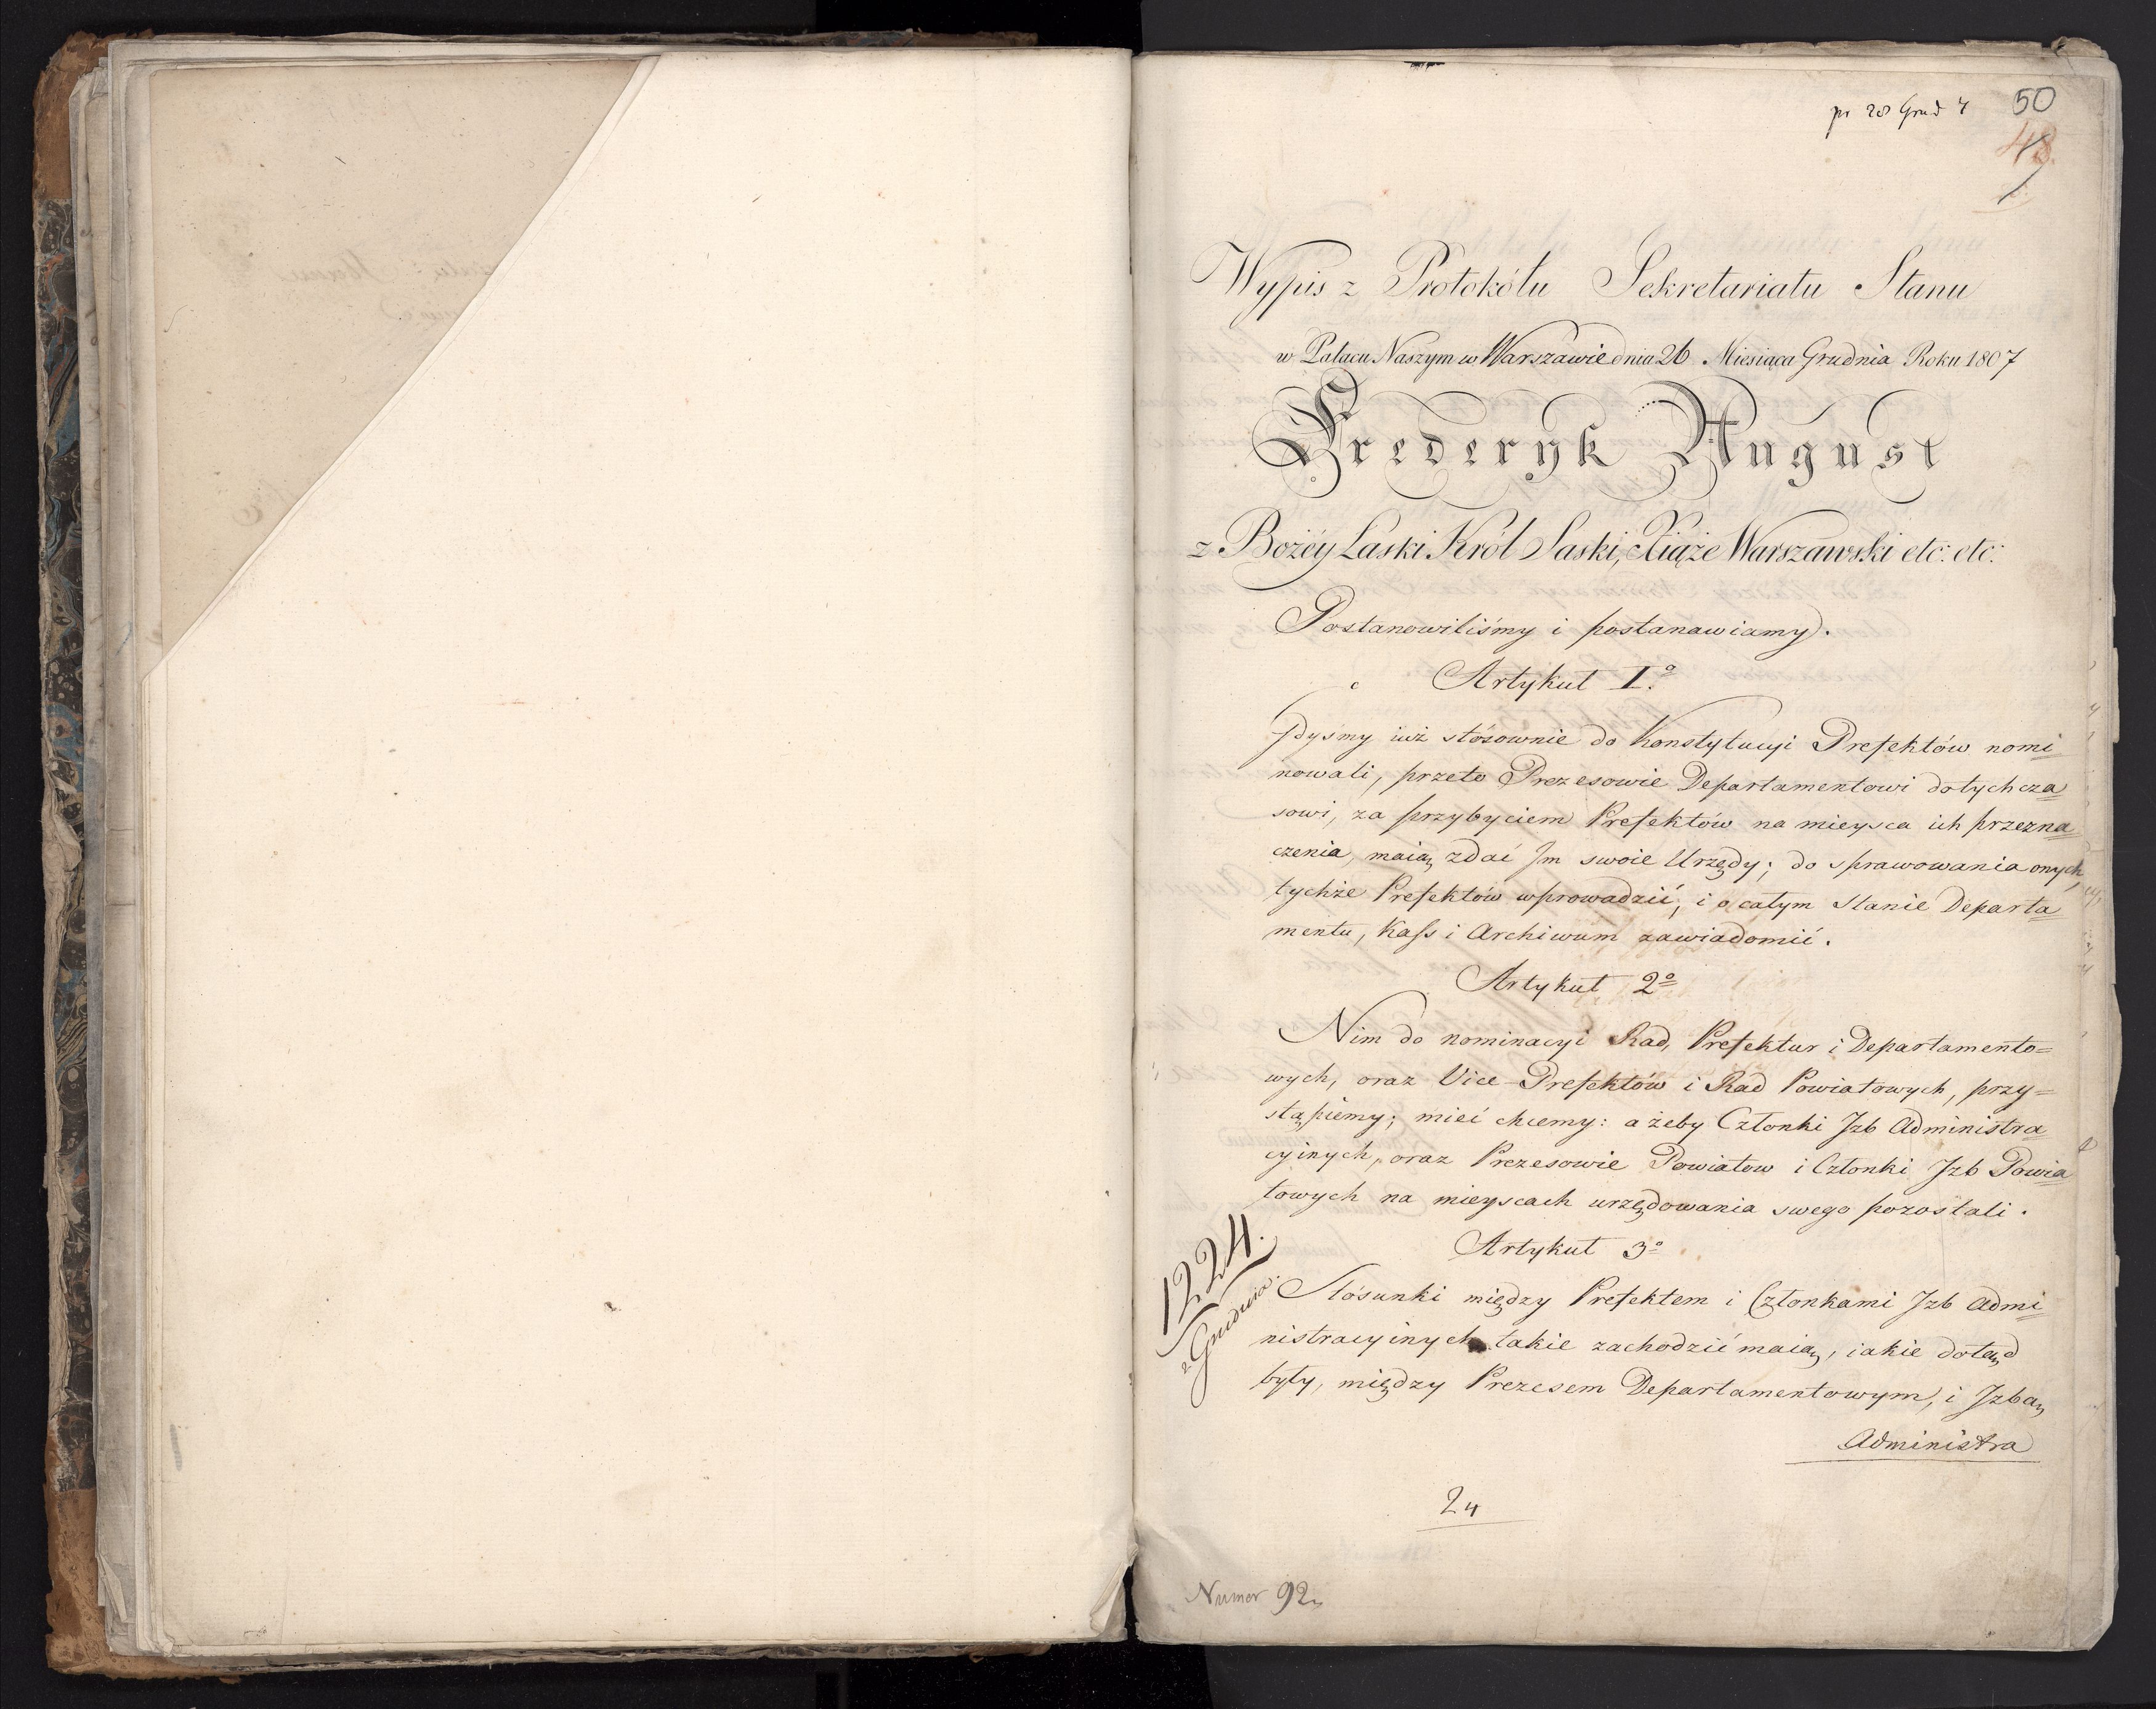 pr 28 Grud 7
50
48.
Wypis z Protokółu Sekretariatu Stanu
w Pałacu Naszym w Warszawie dnia 26 Miesiąca Grudnia Roku 1807
Frederyk August
z Bożéy Łaski Król Saski, Xiąże Warszawski etc: etc:
Postanowiliśmy i postanawiamy.
Artykuł I.º
Gdyśmy iuż stósownie do Konstytucyi Prefektów nomi
nowali, przeto Prezesowie Departamentowi dotychcza
sowi, za przybyciem Prefektów na mieysca ich przezna
czenia, maią zdać Im swoie Urzędy; do sprawowania onych,
tychże Prefektów wprowadzić, i o całym Stanie Departa
mentu, Kass i Archiwum zawiadomić.
Artykuł 2º
Nim do nominacyi Rad, Prefektur i Departamento=
wych, oraz Vice-Prefektów i Rad Powiatowych, przy=
stąpiemy; mieć chcemy: ażeby Członki Izb Administra
cyinych, oraz Prezesowie Powiatow i Członki Izb Powia
towych na mieyscach urzędowania swego pozostali.
Artykuł 3º
Stósunki między Prefektem i Członkami Izb Admi
nistracyinych takie zachodzić maią, iakie dotąd
były, między Prezesem Departamentowym, i Izbą
Administra
1224.
z Grudnia.
24
Numer 92.